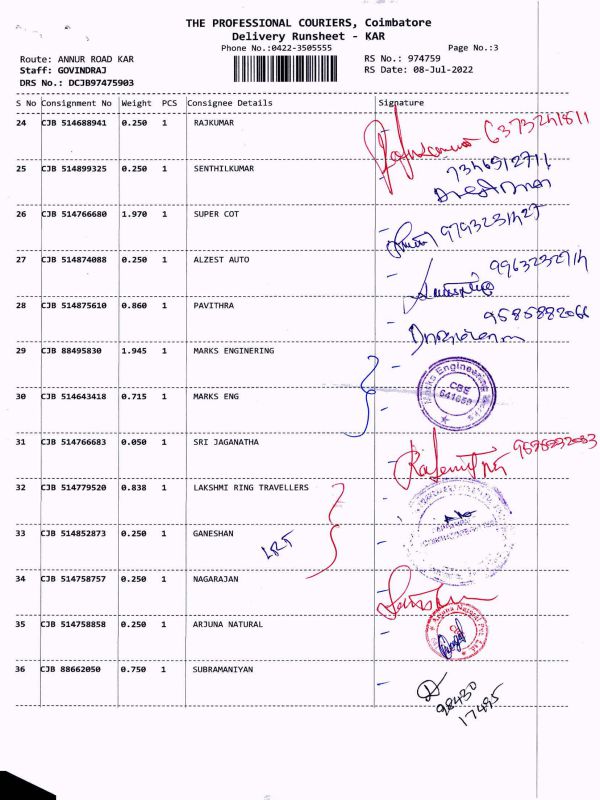 THE PROFESSIONAL COURIERS, Coimbatore
Delivery Runsheet - KAR
Phone No.:0422-3505555
Page No.:3
Route: ANNUR ROAD KAR
RS No.: 974759
Staff: GOVINDRAJ
RS Date: 08-Jul-2022
DRS No.: DCJB97475903
S No Consignment No Weight PCS Consignee Details Signature
24 CJB 514688941 0.250 1 RAJKUMAR
25 CJB 514899325 0.250 1 SENTHILKUMAR
26 CJB 514766680 1.970 1 SUPER COT
27 CJB 514874088 0.250 1 ALZEST AUTO
28 CJB 514875610 0.860 1 PAVITHRA
9585882066
29 CJB 88495830 1.945 1 MARKS ENGINERING
Marks Engineering
CBE
641659
30 CJB 514643418 0.715 1 MARKS ENG
31 CJB 514766683 0.050 1 SRI JAGANATHA
32 CJB 514779520 0.838 1 LAKSHMI RING TRAVELLERS
33 CJB 514852873 0.250 1 GANESHAN
LRT
34 CJB 514758757 0.250 1 NAGARAJAN
35 CJB 514758858 0.250 1 ARJUNA NATURAL
36 CJB 88662050 0.750 1 SUBRAMANIYAN
98430
17495